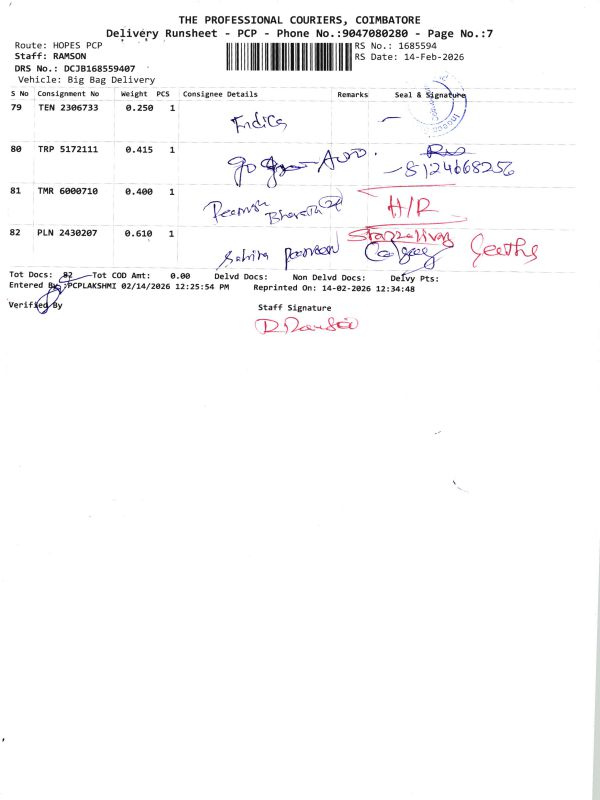 THE PROFESSIONAL COURIERS, COIMBATORE
Delivery Runsheet - PCP - Phone No.:9047080280 - Page No.:7
Route: HOPES PCP RS No.: 1685594
Staff: RAMSON RS Date: 14-Feb-2026
DRS No.: DCJB168559407
Vehicle: Big Bag Delivery
S No Consignment No Weight PCS Consignee Details Remarks Seal & Signature
79 TEN 2306733 0.250 1
80 TRP 5172111 0.415 1 8124668256
81 TMR 6000710 0.400 1 H/R
82 PLN 2430207 0.610 1 Geetha
Tot Docs: 82 Tot COD Amt: 0.00 Delvd Docs: Non Delvd Docs: Delvy Pts:
Entered By: PCPLAKSHMI 02/14/2026 12:25:54 PM Reprinted On: 14-02-2026 12:34:48
Verified By Staff Signature